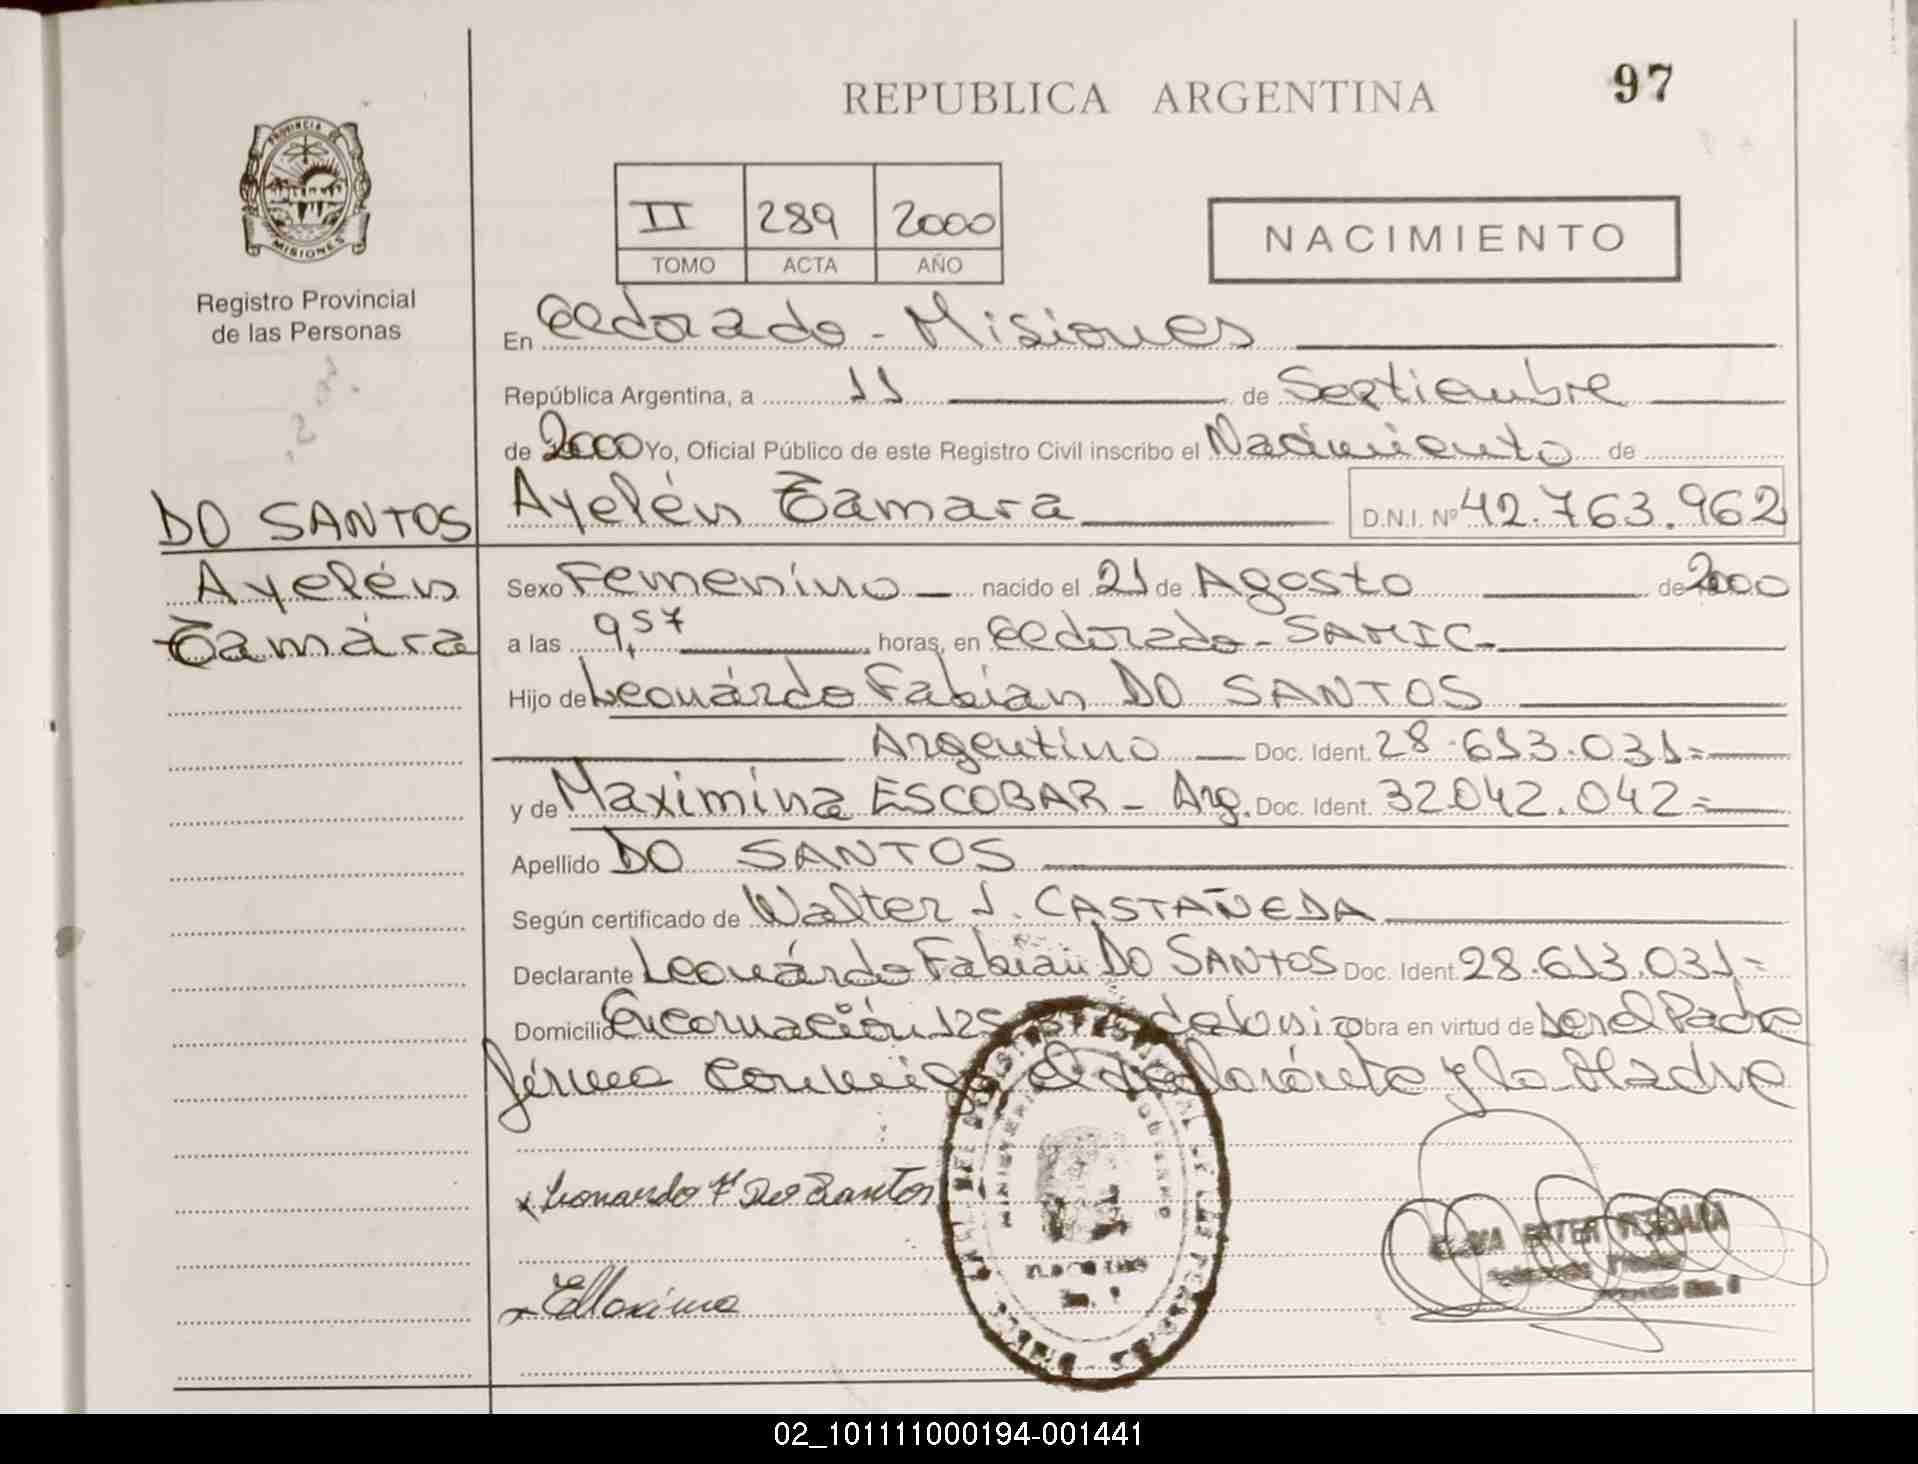 REPUBLICA ARGENTINA
97
PROVINCIA
MISIONES
Registro Provincial
de las Personas
II 289 2000
TOMO ACTA AÑO
NACIMIENTO
En Eldorado - Misiones
República Argentina, a 11 de Septiembre
de 2000 Yo, Oficial Público de este Registro Civil inscribo el Nacimiento de
Ayelén Tamara D.N.I. Nº 42.763.962
DO SANTOS
Ayelén
Tamára
Sexo Femenino nacido el 21 de Agosto de 2000
a las 9,57 horas, en Eldorado - SAMIC-
Hijo de Leonárdo Fabian DO SANTOS
Argentino Doc. Ident. 28.613.031=
y de Maximina ESCOBAR - Arg. Doc. Ident. 32.042.042=
Apellido DO SANTOS
Según certificado de Walter J. CASTAÑEDA
Declarante Leonárdo Fabian DO SANTOS Doc. Ident. 28.613.031=
Domicilio Encarnación 125 obra en virtud de Ser el Padre
firma conmigo el declaránte y la Madre
x Leonardo F Dos Santos
ELDORADO
02_101111000194-001441